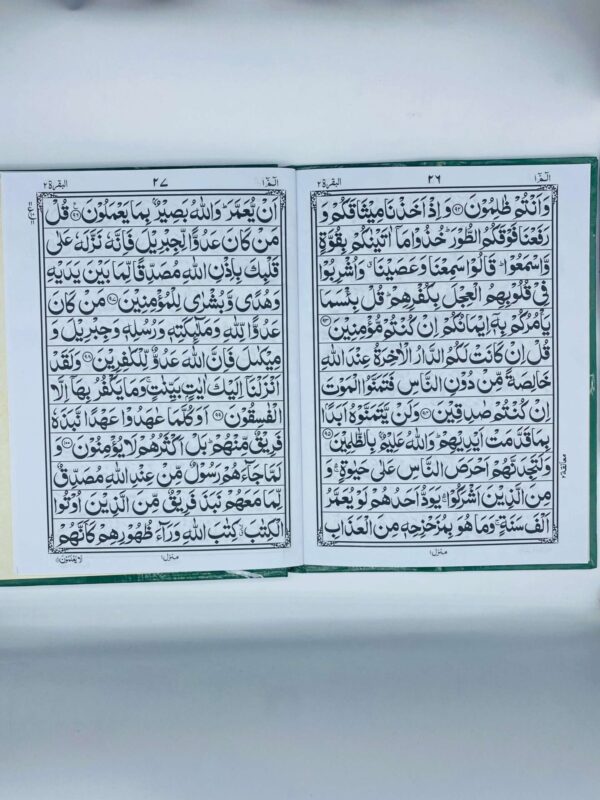 الٓمّٓ ١ ٢٦ البقرة ٢
وَاَنْتُمْ ظٰلِمُوْنَ ﴿٩٢﴾ وَاِذْ اَخَذْنَا مِيْثَاقَكُمْ وَ
رَفَعْنَا فَوْقَكُمُ الطُّوْرَ ؕ خُذُوْا مَاۤ اٰتَيْنٰكُمْ بِقُوَّةٍ
وَّاسْمَعُوْا ؕ قَالُوْا سَمِعْنَا وَعَصَيْنَا ۗ وَاُشْرِبُوْا
فِيْ قُلُوْبِهِمُ الْعِجْلَ بِكُفْرِهِمْ ؕ قُلْ بِئْسَمَا
يَاْمُرُكُمْ بِهٖۤ اِيْمَانُكُمْ اِنْ كُنْتُمْ مُّؤْمِنِيْنَ ﴿٩٣﴾
قُلْ اِنْ كَانَتْ لَكُمُ الدَّارُ الْاٰخِرَةُ عِنْدَ اللّٰهِ
خَالِصَةً مِّنْ دُوْنِ النَّاسِ فَتَمَنَّوُا الْمَوْتَ
اِنْ كُنْتُمْ صٰدِقِيْنَ ﴿٩٤﴾ وَلَنْ يَّتَمَنَّوْهُ اَبَدًۢا
بِمَا قَدَّمَتْ اَيْدِيْهِمْ ؕ وَاللّٰهُ عَلِيْمٌۢ بِالظّٰلِمِيْنَ ﴿٩٥﴾
وَلَتَجِدَنَّهُمْ اَحْرَصَ النَّاسِ عَلٰى حَيٰوةٍ ۛۚ وَ
مِنَ الَّذِيْنَ اَشْرَكُوْا ۛۚ يَوَدُّ اَحَدُهُمْ لَوْ يُعَمَّرُ
اَلْفَ سَنَةٍ ۚ وَمَا هُوَ بِمُزَحْزِحِهٖ مِنَ الْعَذَابِ
معانقة
منزل ١
الٓمّٓ ١ ٢٧ البقرة ٢
اَنْ يُّعَمَّرَ ؕ وَاللّٰهُ بَصِيْرٌۢ بِمَا يَعْمَلُوْنَ ﴿٩٦﴾ قُلْ
مَنْ كَانَ عَدُوًّا لِّجِبْرِيْلَ فَاِنَّهٗ نَزَّلَهٗ عَلٰى
قَلْبِكَ بِاِذْنِ اللّٰهِ مُصَدِّقًا لِّمَا بَيْنَ يَدَيْهِ
وَهُدًى وَّبُشْرٰى لِلْمُؤْمِنِيْنَ ﴿٩٧﴾ مَنْ كَانَ
عَدُوًّا لِّلّٰهِ وَمَلٰٓئِكَتِهٖ وَرُسُلِهٖ وَجِبْرِيْلَ وَ
مِيْكٰىلَ فَاِنَّ اللّٰهَ عَدُوٌّ لِّلْكٰفِرِيْنَ ﴿٩٨﴾ وَلَقَدْ
اَنْزَلْنَاۤ اِلَيْكَ اٰيٰتٍۭ بَيِّنٰتٍ ۚ وَمَا يَكْفُرُ بِهَاۤ اِلَّا
الْفٰسِقُوْنَ ﴿٩٩﴾ اَوَكُلَّمَا عٰهَدُوْا عَهْدًا نَّبَذَهٗ
فَرِيْقٌ مِّنْهُمْ ؕ بَلْ اَكْثَرُهُمْ لَا يُؤْمِنُوْنَ ﴿١٠٠﴾ وَ
لَمَّا جَآءَهُمْ رَسُوْلٌ مِّنْ عِنْدِ اللّٰهِ مُصَدِّقٌ
لِّمَا مَعَهُمْ نَبَذَ فَرِيْقٌ مِّنَ الَّذِيْنَ اُوْتُوا
الْكِتٰبَ ۙ كِتٰبَ اللّٰهِ وَرَآءَ ظُهُوْرِهِمْ كَاَنَّهُمْ
منزل ١ لَا يَعْلَمُوْنَ